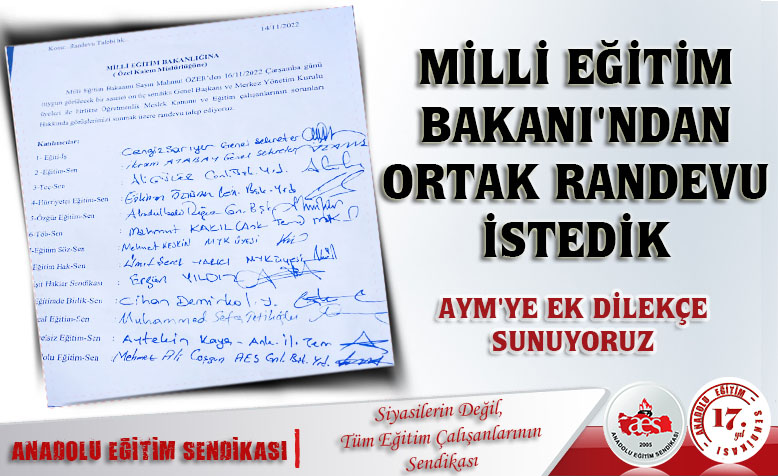 14/11/2022
Konu: Randevu Talebi hk.
MİLLİ EĞİTİM BAKANLIĞINA
( Özel Kalem Müdürlüğüne)
Milli Eğitim Bakanım Sayın Mahmut ÖZER'den 16/11/2022 Çarşamba günü
uygun görülecek bir saatte on üç sendika Genel Başkanı ve Merkez Yönetim Kurulu
üyeleri ile birlikte Öğretmenlik Meslek Kanunu ve Eğitim çalışanlarının sorunları
Hakkında görüşlerimizi sunmak üzere randevu talep ediyoruz.
Katılımcılar:
1- Eğit-İş Cengiz Sarıyer Genel Sekreter
2-Eğitim-Sen : İkram ATABAY Genel Sekreter
3-Teç-Sen : Ali GÜLER Gnl. Bşk. Yrd.
4-Hürriyetçi Eğitim-Sen : ÖZKAN Gen. Bşk. Yrd
5-Özgür Eğitim-Sen : Gn. Bşk.
6-Töb-Sen : Mahmut KAKIL (Ank. Tem)
-Eğitim Söz-Sen : Mehmet KESKİN MYK ÜYESİ
Eğitim Hak-Sen : Ümit Şenel YARICI MYK Üyesi
Haklar Sendikası : Ergün YILDIZ
Eğitimde Birlik-Sen : Cihan Demirkol
Eğitim-Sen : Muhammed Sefa
Eğitim-Sen : Aytekin Kaya - Ank. il. Tem
olu Eğitim-Sen : Mehmet Ali Coşgun AES Gnl. Bşk. Yrd.
MİLLİ EĞİTİM
BAKANI'NDAN
ORTAK RANDEVU
İSTEDİK
AYM'YE EK DİLEKÇE
SUNUYORUZ
ANADOLU EĞİTİM SENDİKASI
Siyasilerin Değil,
Tüm Eğitim Çalışanlarının
Sendikası
aes
2005
ANADOLU EĞİTİM SENDİKASI
ANADOLU EĞİTİM SENDİKASI
17. yıl